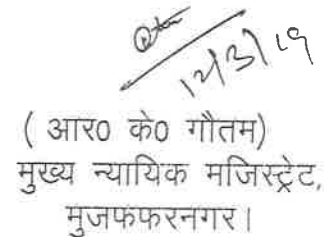 12/3/19
( आर0 के0 गौतम)
मुख्य न्यायिक मजिस्ट्रेट,
मुजफफरनगर।